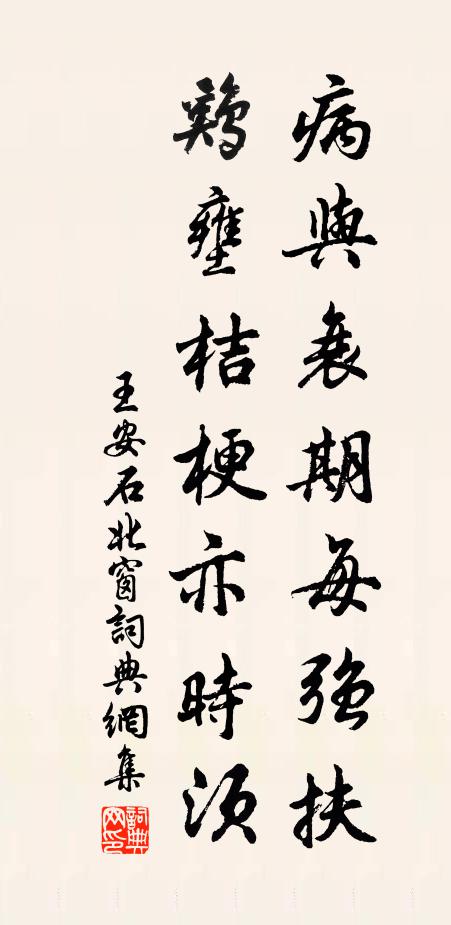 病與衰期每強扶
鷄壅桔梗亦時須
王安石北窗詞典網集
詞典網印